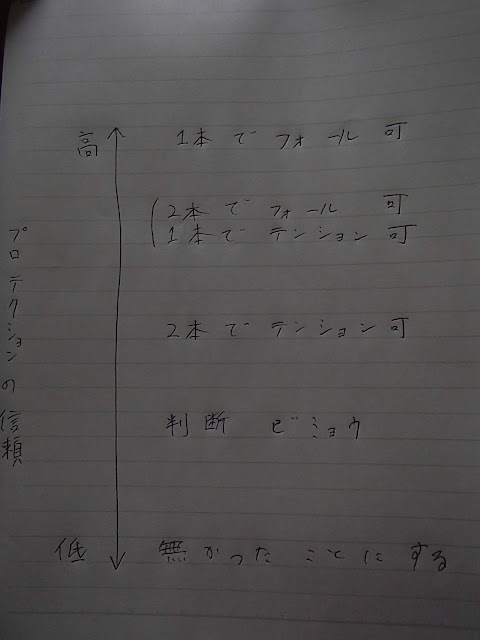 高
1本でフォール可
2本でフォール可
1本でテンション可
プロテクションの信頼
2本でテンション可
判断ビミョウ
低
無かったことにする